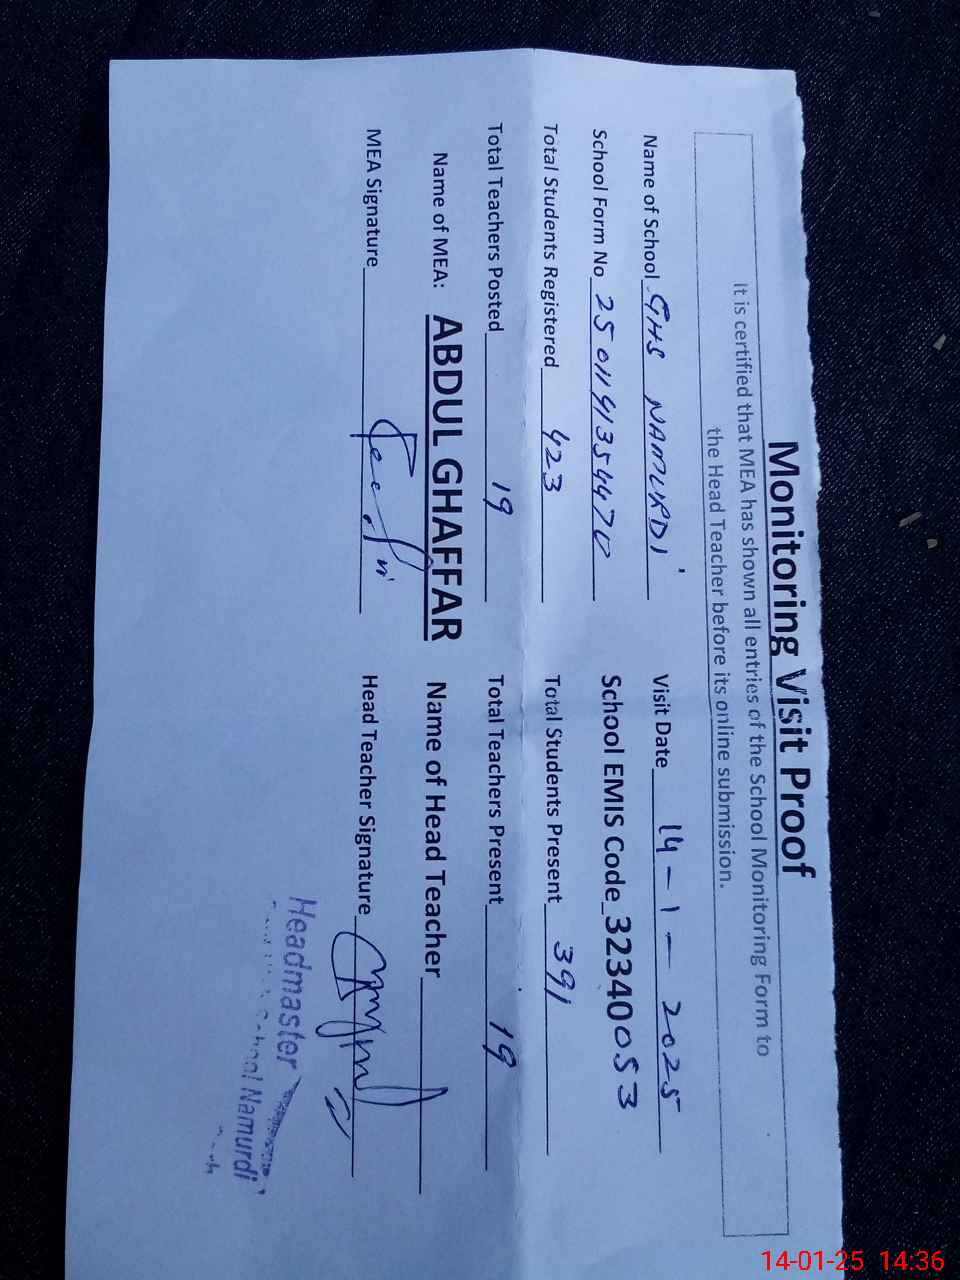 Monitoring Visit Proof
It is certified that MEA has shown all entries of the School Monitoring Form to
the Head Teacher before its online submission.
Name of School GHS NAMURDI Visit Date 14-1-2025
School Form No 2501191354470 School EMIS Code 32340053
Total Students Registered 423 Total Students Present 391
Total Teachers Posted 19 Total Teachers Present 19
Name of MEA: ABDUL GHAFFAR Name of Head Teacher
MEA Signature Head Teacher Signature
Headmaster
School Namurdi
14-01-25 14:36